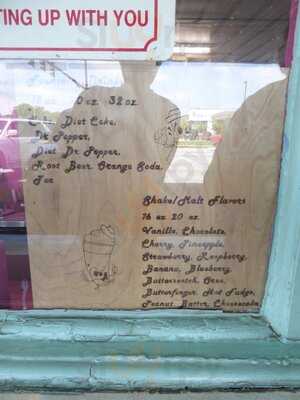 TING UP WITH YOU
oz. 32 oz.
Diet Coke,
Dr Pepper,
Diet Dr Pepper,
Root Beer, Orange Soda,
Tea
Shake/Malt Flavors
16 oz 20 oz.
Vanilla, Chocolate,
Cherry, Pineapple,
Strawberry, Raspberry,
Banana, Blueberry,
Butterscotch, Oreo,
Butterfinger, Hot Fudge,
Peanut Butter, Cheesecake